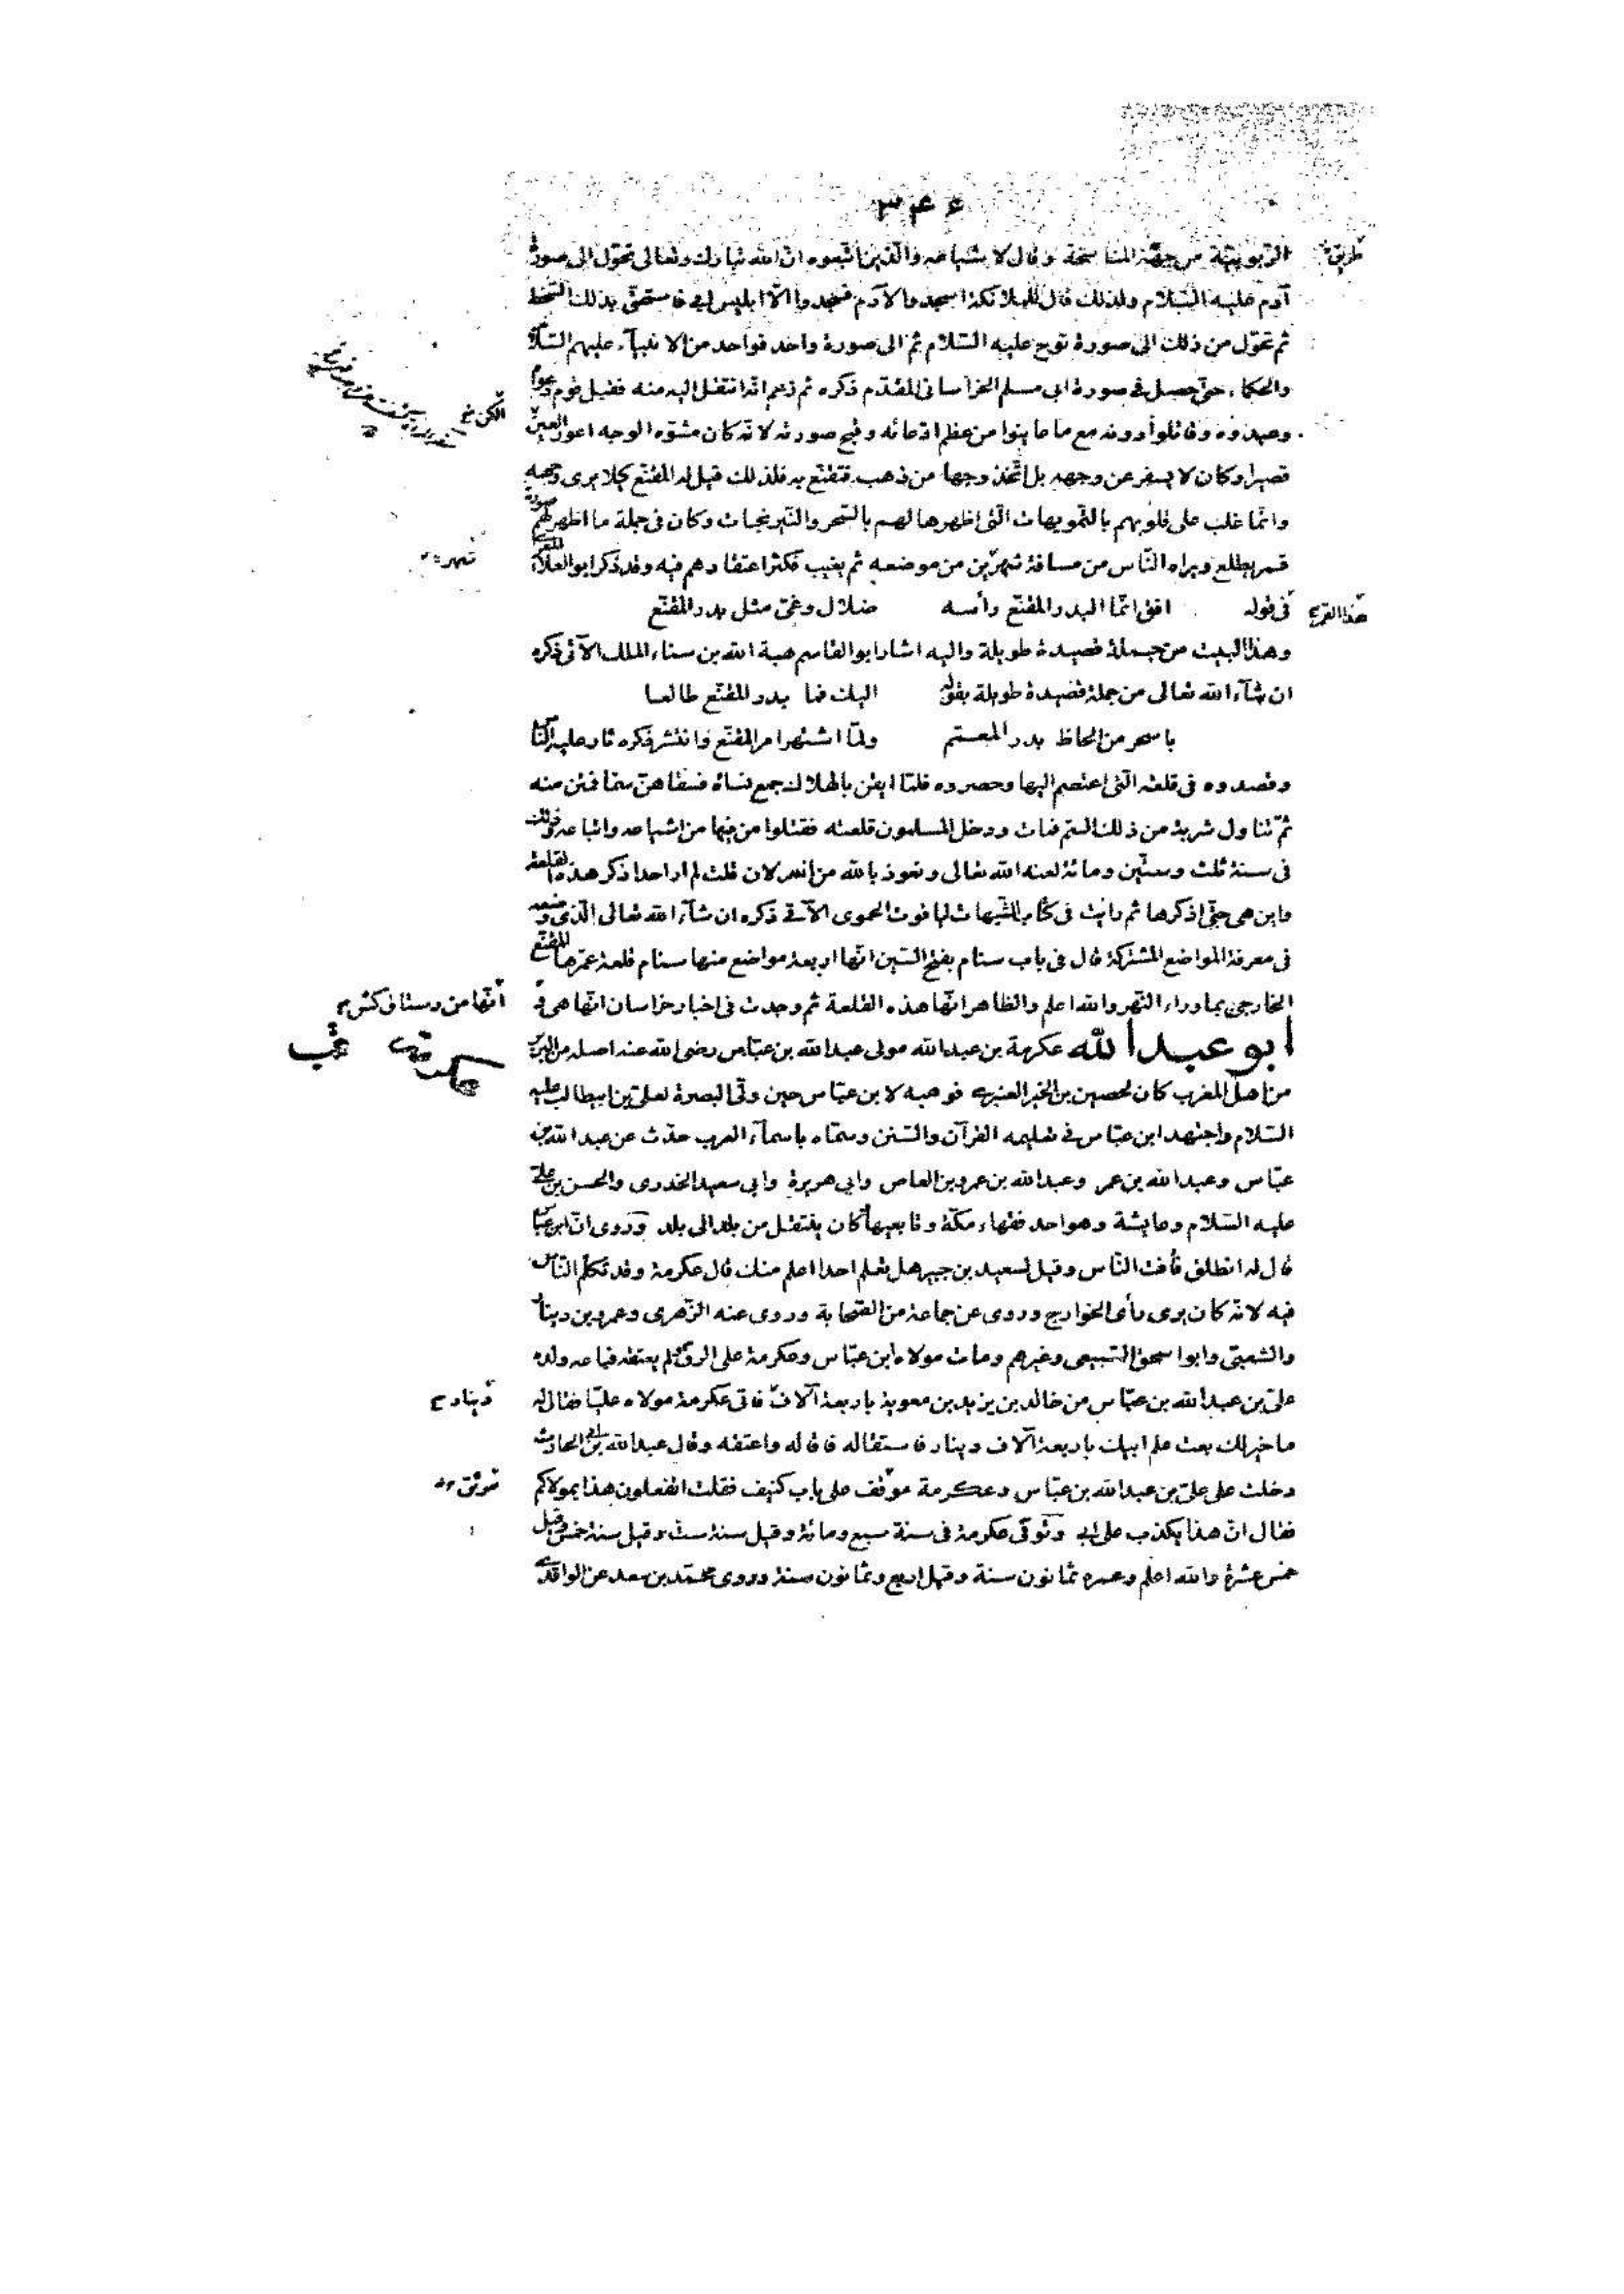 ٣٤٤
الربوبيّة من جهة المناسخة وقال لاشياعه والّذين اتّبعوه انّ الله تبارك وتعالى تحوّل الى صورة
آدم عليه السّلام ولذلك قال للملائكة اسجدوا لآدم فسجدوا الّا ابليس ابى فاستحقّ بذلك السّخط
ثم تحوّل من ذلك الى صورة نوح عليه السّلام ثم الى صورة واحد فواحد من الانبيآء عليهم السّلام
والحكماء حتى حصل في صورة ابى مسلم الخراسانى المقدّم ذكره ثم زعم انّه انتقل اليه منه فقبل قوم دعواه
وعبدوه وقاتلوا دونه مع ما عاينوا من عظم ادّعائه وقبح صورته لانّه كان مشوّه الوجه اعور العين
قصيرا وكان لا يسفر عن وجهه بل اتّخذ وجها من ذهب فتقنّع به فلذلك قيل له المقنّع كيلا يرى وجهه
وانّما غلب على قلوبهم بالتمويهات الّتى اظهرها لهم بالسّحر والنّيرنجات وكان في جملة ما اظهر لهم صورة
قمر يطلع ويراه النّاس من مسافة شهرين من موضعه ثم يغيب فكثر اعتقادهم فيه وقد ذكر ابو العلاء المعرّى
في قوله افق انّما البدر المقنّع رأسه ضلال وغىّ مثل بدر المقنّع
وهذا البيت من جملة قصيدة طويلة واليه اشار ابو القاسم هبة الله بن سناء الملك الآتى ذكره
ان شآء الله تعالى من جملة قصيدة طويلة بقوله اليك فما بدر المقنّع طالعا
باسحر من الحاظ بدر المعمّم ولمّا اشتهر امر المقنّع وانتشر ذكره ثار عليه النّاس
وقصدوه في قلعته الّتى اعتصم اليها وحصروه فلمّا ايقن بالهلاك جمع نساه فسقاهنّ سمّا فمتن منه
ثمّ تناول شربة من ذلك السّم فمات ودخل المسلمون قلعته فقتلوا من فيها من اشياعه واتباعه وذلك
في سنة ثلث وستّين ومائة لعنه الله تعالى ونعوذ بالله من الخذلان قلت لم ار احدا ذكر هذه القلعة
واين هى حتى اذكرها ثم رايت في كتاب الشّبهات لياقوت الحموى الآتى ذكره ان شآء الله تعالى الّذى وضعه
في معرفة المواضع المشتركة قال في باب سنام بفتح السّين انّها اربعة مواضع منها سنام قلعة عمّرها المقنّع
الخارجىّ بماوراء النّهر والله اعلم والظاهر انّها هذه القلعة ثم وجدت في اخبار خراسان انّها هى
ابو عبد الله عكرمة بن عبد الله مولى عبد الله بن عبّاس رضى الله عنه اصله من البربر
من اهل المغرب كان لحصين بن الخير العنبرى فوهبه لابن عبّاس حين ولّى البصرة لعلىّ بن ابيطالب عليه
السّلام واجتهد ابن عبّاس في تعليمه القرآن والسّنن وسمّاه باسمآء العرب حدّث عن عبد الله بن
عبّاس وعبد الله بن عمر وعبد الله بن عمرو بن العاص وابى هريرة وابى سعيد الخدرى والحسن بن علىّ
عليه السّلام وعايشة وهو احد فقهاء مكّة وتابعيها كان ينتقل من بلد الى بلد وروى انّ ابن عبّاس
قال له انطلق فأفت النّاس وقيل لسعيد بن جبير هل تعلم احدا اعلم منك قال عكرمة وقد تكلّم النّاس
فيه لانّه كان يرى رأى الخوارج وروى عن جماعة من الصّحابة وروى عنه الزّهرى وعمرو بن دينار
والشعبىّ وابو اسحق السّبيعى وغيرهم ومات مولاه ابن عبّاس وعكرمة على الرقّ لم يعتقه فباعه ولده
علىّ بن عبد الله بن عبّاس من خالد بن يزيد بن معوية باربعة آلاف فاتى عكرمة مولاه عليّا فقال له
ما خير لك بعت علم ابيك باربعة آلاف دينار فاستقاله فاقاله واعتقه وقال عبد الله بن الحارث
دخلت على علىّ بن عبد الله بن عبّاس وعكرمة موثّق على باب كنيف فقلت اتفعلون هذا بمولاكم
فقال انّ هذا يكذب على ابى وتوفّى عكرمة في سنة سبع ومائة وقيل سنة ستّ وقيل سنة خمس وقيل
خمس عشرة والله اعلم وعمره ثمانون سنة وقيل اربع وثمانون سنة وروى محمّد بن سعد عن الواقدى
طريق
هذا القمر
الكن
شهر
انّها من رستاق كش
دينار
موثق